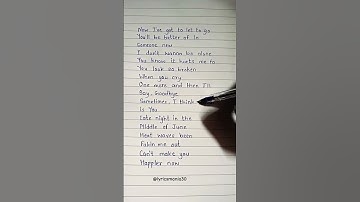 Now I've got to let to go
You'll be better of in
Someone new
I don't wanna be alone
You know it hurts me to
You look so broken
When you cry
One more and then I'll
Say, Goodbye
Sometimes, I think
Is You
Late night in the
Middle of June
Heat waves been
Fakin me out
Can't make you
Happier now
@lyricsmania30